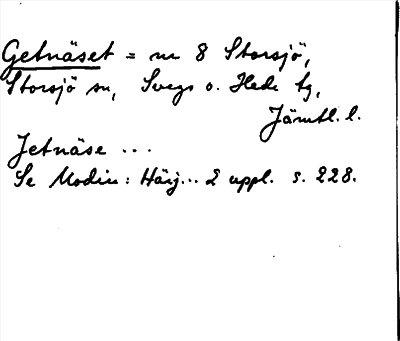 Getnäset = nr 8 Storsjö,
Storsjö sn, Svegs o. Hede tg,
Jämtl. l.
Jetnäse ...
Se Modin: Härj... 2 uppl. s. 228.